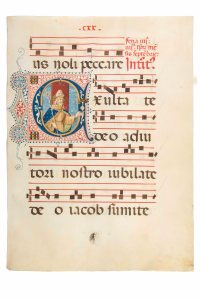 cxx.
feria iiii.
uis noli peccare Intr̄.
Exulta te
deo adiu
tori nostro iubilate
deo iacob sumite